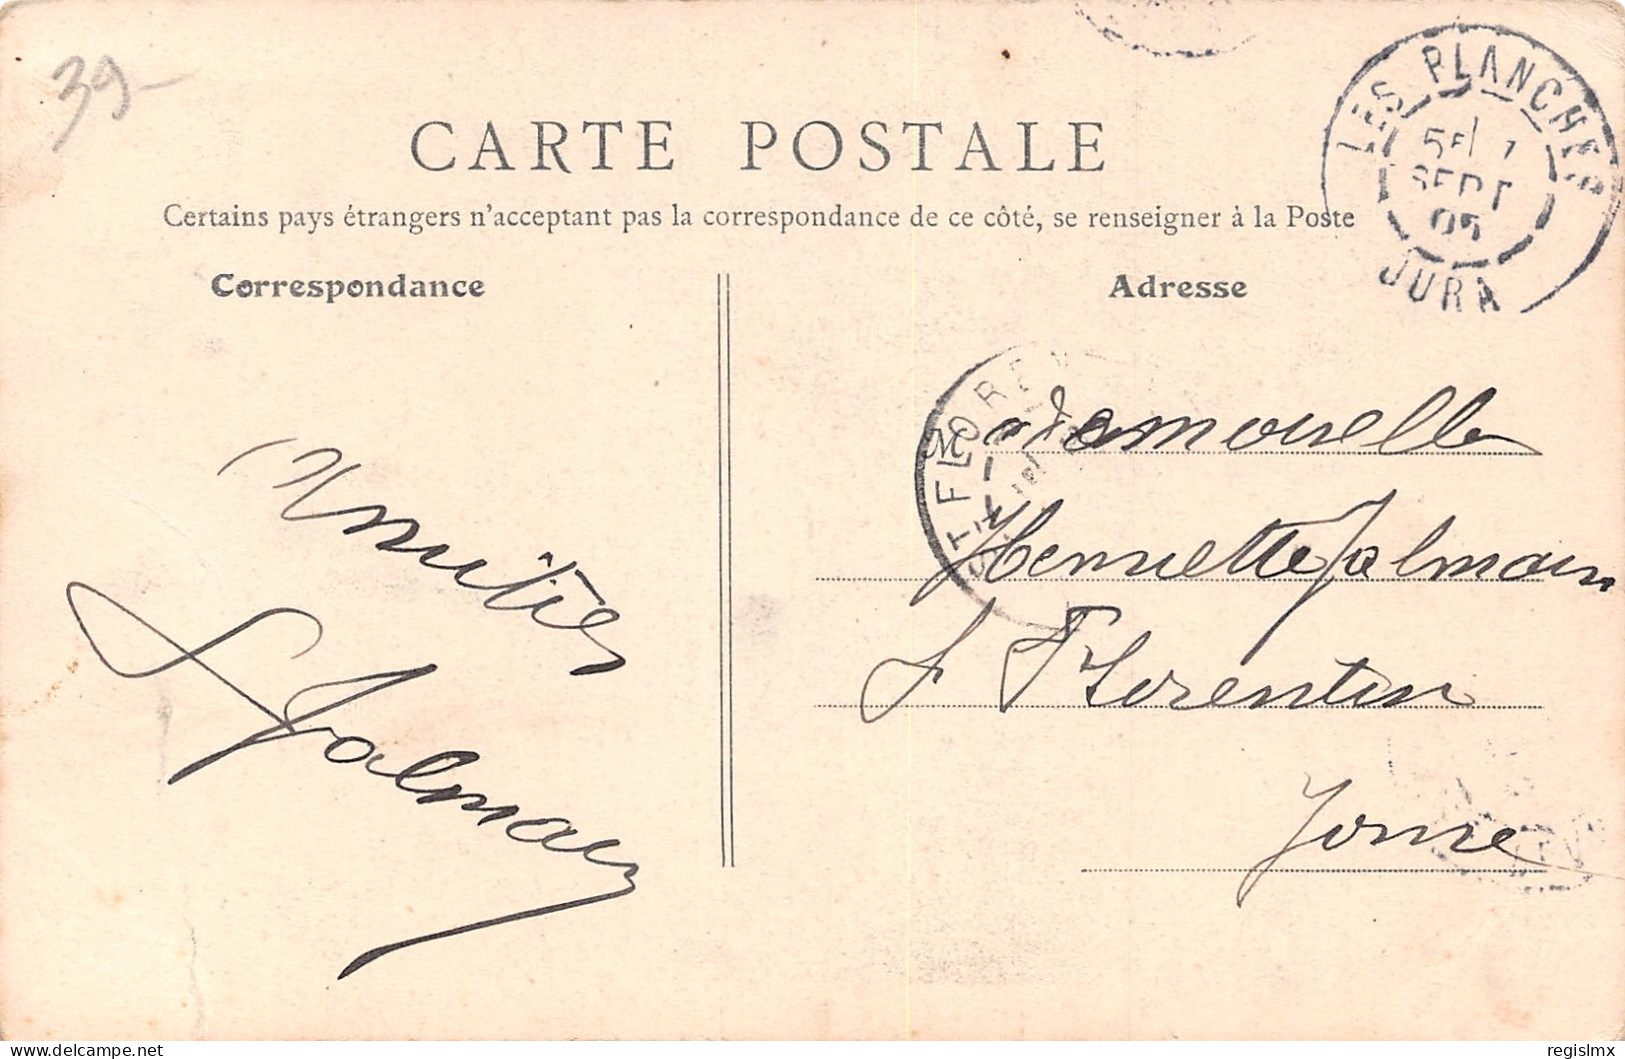 39-
CARTE POSTALE
Certains pays étrangers n'acceptant pas la correspondance de ce côté, se renseigner à la Poste
Correspondance
Adresse
LES PLANCHES
SEPT
05
JURA
ST FLOREN
Amitiés
Jalmain
Mademoiselle
Henriette Jalmain
St Florentin
Yonne
delcampe.net
regislmx